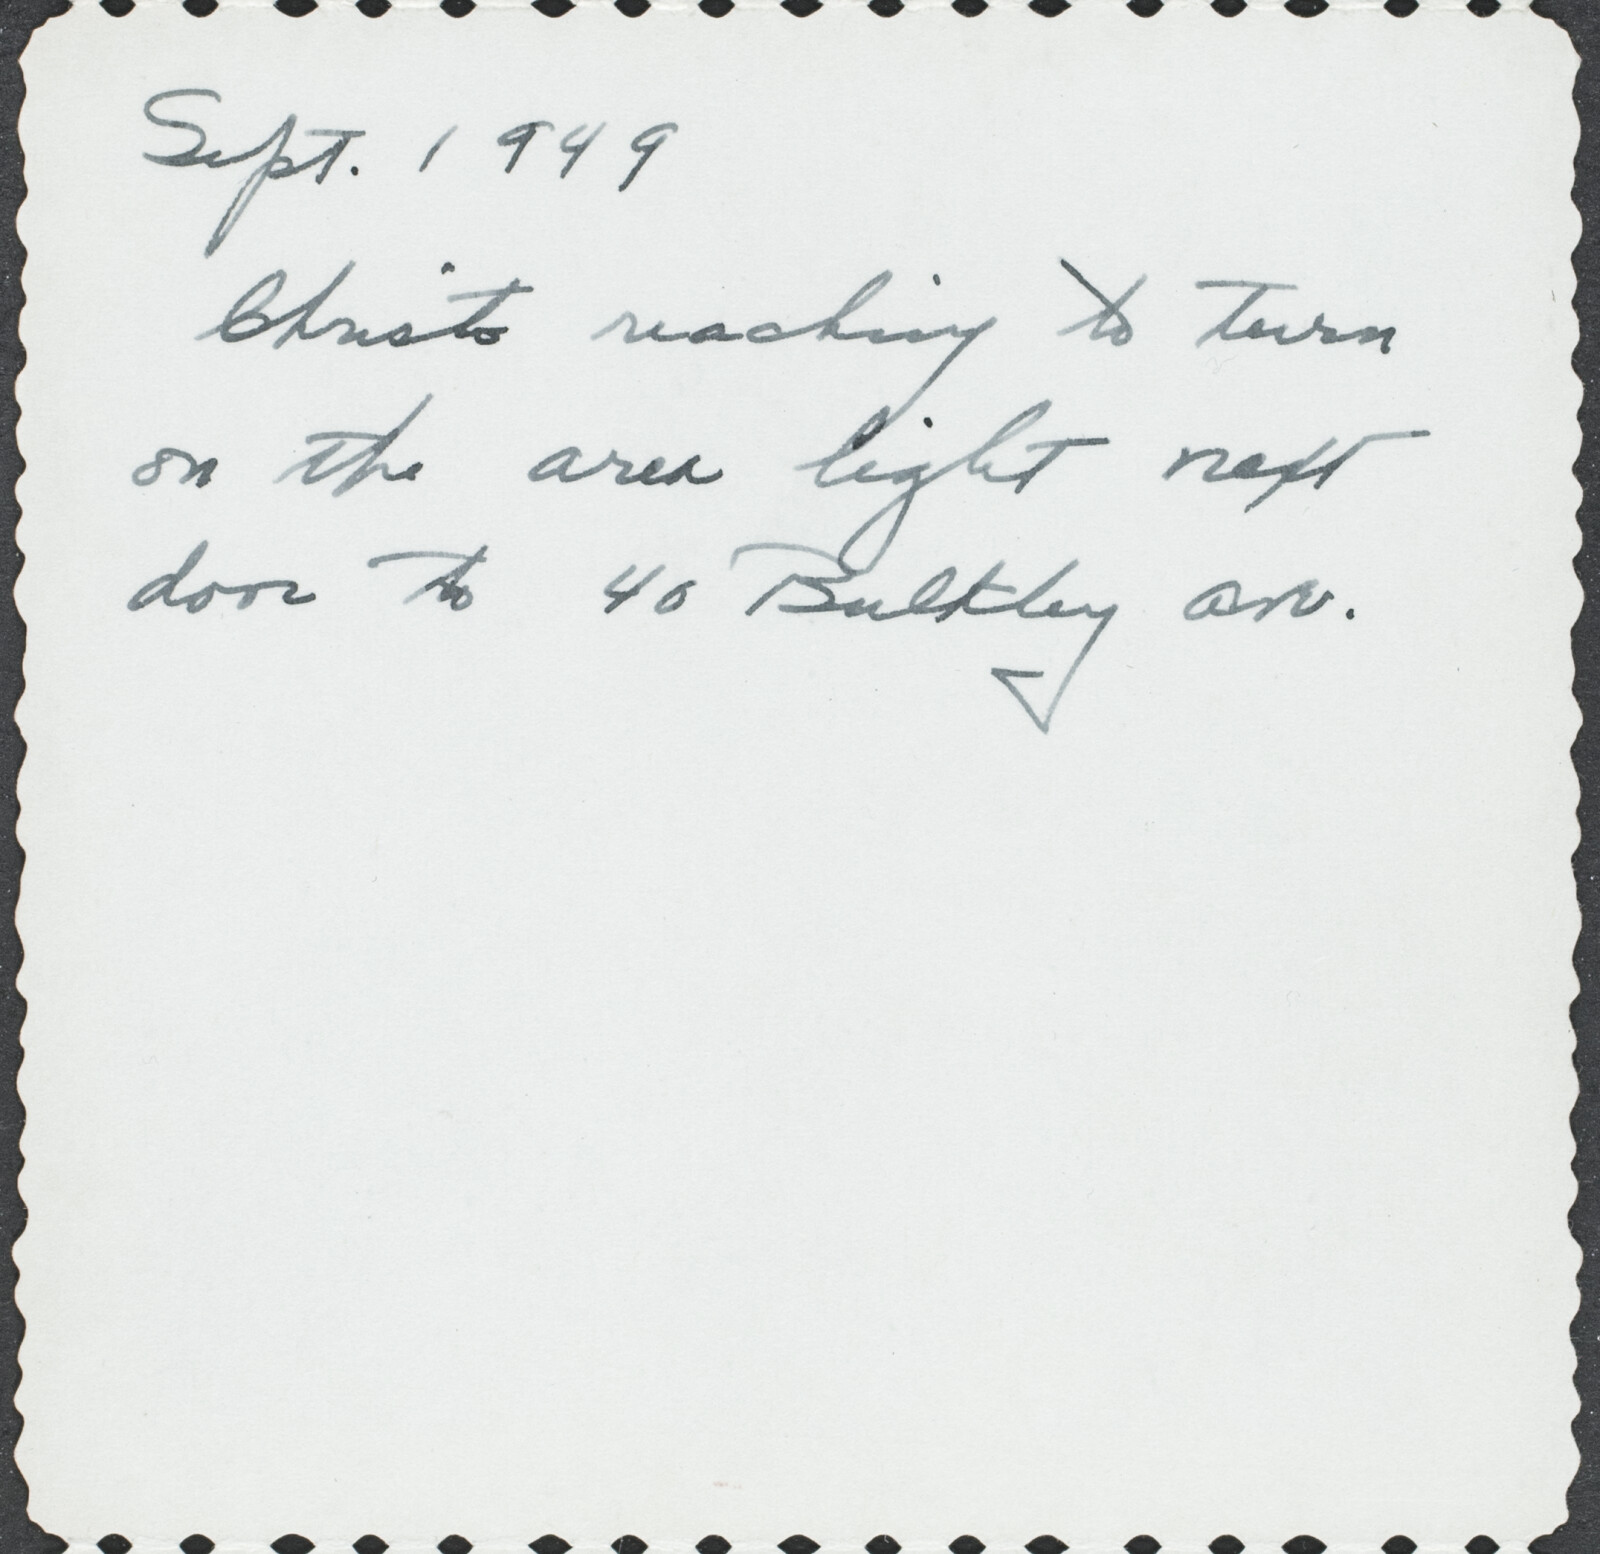 Sept. 1949
Christo reaching to turn
on the area light next
door to 40 Bulkley ave.